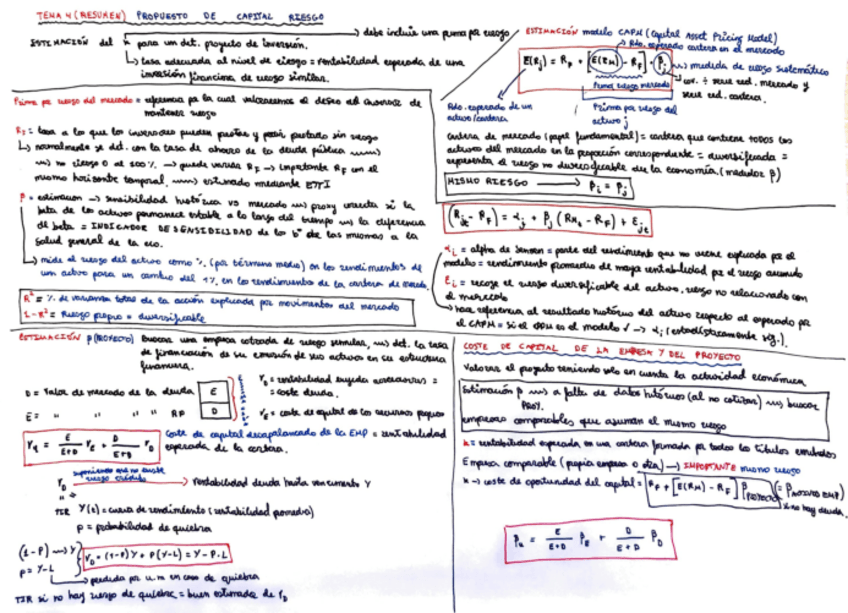 TEMA 4 (RESUMEN) PROPUESTO DE CAPITAL RIESGO
ESTIMACIÓN del k para un det. proyecto de inversión.
debe incluir una prima por riesgo
tasa adecuada al nivel de riesgo = rentabilidad esperada de una
inversión financiera de riesgo similar.
Prima por riesgo del mercado = referencia por la cual valoraremos el deseo del inversor de
mantener riesgo
R_F = tasa a la que los inversores pueden prestar y pedir prestado sin riesgo
normalmente se det. con la tasa de ahorro de la deuda pública
no riesgo 0 al 100% → puede variar R_F → importante R_F con el
mismo horizonte temporal, estimado mediante ETTI
β = estimación → sensibilidad histórica vs mercado proxy correcta si la
beta de los activos permanece estable a lo largo del tiempo la diferencia
de beta = INDICADOR DE SENSIBILIDAD de los bº de las mismas a la
salud general de la eco.
mide al riesgo del activo como % (por término medio) en los rendimientos de
un activo para un cambio del 1% en los rendimientos de la cartera de merc.
R² = % de varianza total de la acción explicada por movimientos del mercado
1-R² = Riesgo propio = diversificable
ESTIMACIÓN modelo CAPM (Capital Asset Pricing Model)
Rdo. esperado cartera en el mercado
E(R_j) = R_F + [E(R_M) - R_F] · β_j
medida de riesgo sistemático
cov. ÷ entre red. mercado y
entre red. cartera.
Prima riesgo mercado
Rdo. esperado de un
activo/cartera
Prima por riesgo del
activo j
Cartera de mercado (papel fundamental) = cartera que contiene TODOS los
activos del mercado en la proporción correspondiente = diversificada =
representa el riesgo no diversificable de la economía (medidor β)
MISMO RIESGO → β_i = β_j
(R_jt - R_F) = α_j + β_j (RM_t - R_F) + ε_jt
α_i = alpha de Jensen = parte del rendimiento que no viene explicada por el
modelo = rendimiento promedio de mayor rentabilidad por el riesgo asumido
ε_i = recoge el riesgo diversificable del activo, riesgo no relacionado con
el mercado
hace referencia al resultado histórico del activo respecto al esperado por
el CAPM = si el CAPM es el modelo √ → α_i (estadísticamente sig.).
ESTIMACIÓN β (PROYECTO) Buscar una empresa cotizada de riesgo similar, det. la tasa
de financiación de su emisión de sus activos en su estructura
financiera.
D = Valor de mercado de la deuda
E = " " " " RP
E
D
r_D = rentabilidad exigida acreedores =
= coste deuda.
r_E = coste de capital de los recursos propios
r_u = E/(E+D) r_E + D/(E+D) r_D
Coste de capital desapalancado de la EMP = rentabilidad
esperada de la cartera.
suponiendo que no existe
riesgo crédito
r_D → rentabilidad deuda hasta vencimiento Y
TIR Y(t) = curva de rendimiento (rentabilidad promedio)
P = probabilidad de quiebra
(1-P) → Y
P = Y-L
r_D = (1-P)Y + P(Y-L) = Y - P·L
pérdida por u.m en caso de quiebra
TIR si no hay riesgo de quiebra = buen estimador de r_D
COSTE DE CAPITAL DE LA EMPRESA Y DEL PROYECTO
Valorar el proyecto teniendo solo en cuenta la actividad económica
Estimación β a falta de datos históricos (al no cotizar) buscar
PROY.
empresas comparables que asuman el mismo riesgo
k = rentabilidad esperada en una cartera formada por todos los títulos emitidos
Empresa comparable (propia empresa o otra) → IMPORTANTE mismo riesgo
k → coste de oportunidad del capital = R_F + [E(R_M) - R_F] β_PROYECTO (= β_ACTIVOS EMP)
si no hay deuda.
β_u = E/(E+D) β_E + D/(E+D) β_D